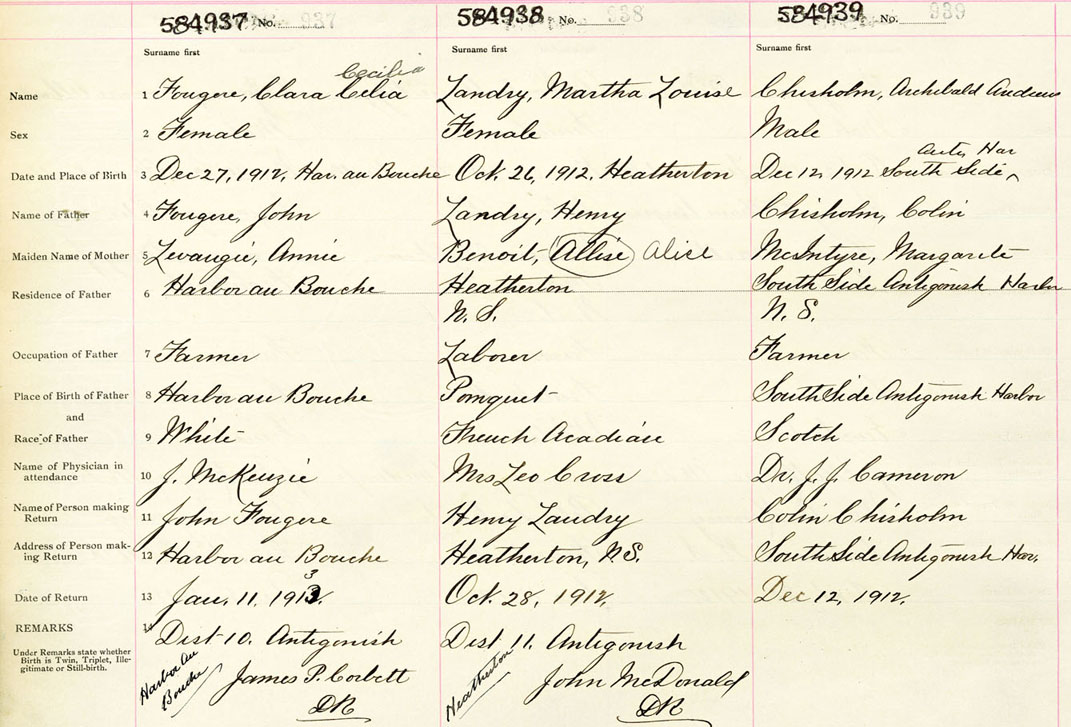 584937 No. 937 584938 No. 938 584939 No. 939
Surname first Surname first Surname first
Cecilia
Name 1 Fougere, Clara Celia Landry, Martha Louise Chisholm, Archibald Andrew
Sex 2 Female Female Male
Anty Har
Date and Place of Birth 3 Dec 27, 1912, Har. au Bouche Oct. 26, 1912, Heatherton Dec 12, 1912 South Side,
Name of Father 4 Fougere, John Landry, Henry Chisholm, Colin
Maiden Name of Mother 5 Levangie, Annie Benoit, Allise Alice McIntyre, Margarete
Residence of Father 6 Harbor au Bouche Heatherton South Side Antigonish Harbor
N. S. N. S.
Occupation of Father 7 Farmer Laborer Farmer
Place of Birth of Father 8 Harbor au Bouche Pomquet South Side Antigonish Harbor
and
Race of Father 9 White French Acadian Scotch
Name of Physician in
attendance 10 J. McKenzie Mrs Leo Cross Dr. J. J. Cameron
Name of Person making
Return 11 John Fougere Henry Landry Colin Chisholm
Address of Person mak-
ing Return 12 Harbor au Bouche Heatherton, N.S. South Side Antigonish Har.
3
Date of Return 13 Jan. 11, 1913. Oct. 28, 1912, Dec 12, 1912,
REMARKS 14 Dist 10. Antigonish Dist 11. Antigonish
Under Remarks state whether
Birth is Twin, Triplet, Ille-
gitimate or Still-birth.
Harbor Au
Bouche James P. Corbett Heatherton John McDonald
DR DR